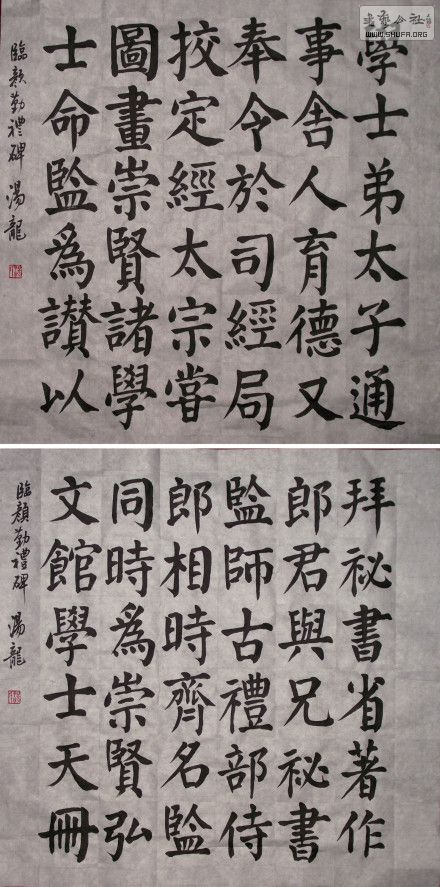 書藝公社
WWW.SHUFA.ORG
學士弟太子通
事舍人育德又
奉令於司經局
挍定經太宗嘗
圖畫崇賢諸學
士命監爲讃以
臨顏勤禮碑 湯龍
拜祕書省著作
郎君與兄祕書
監師古禮部侍
郎相時齊名監
同時爲崇賢弘
文館學士天冊
臨顏勤禮碑 湯龍